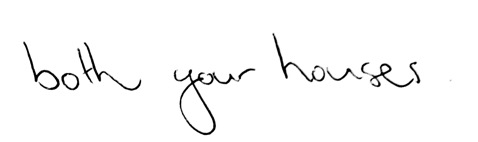 both your houses